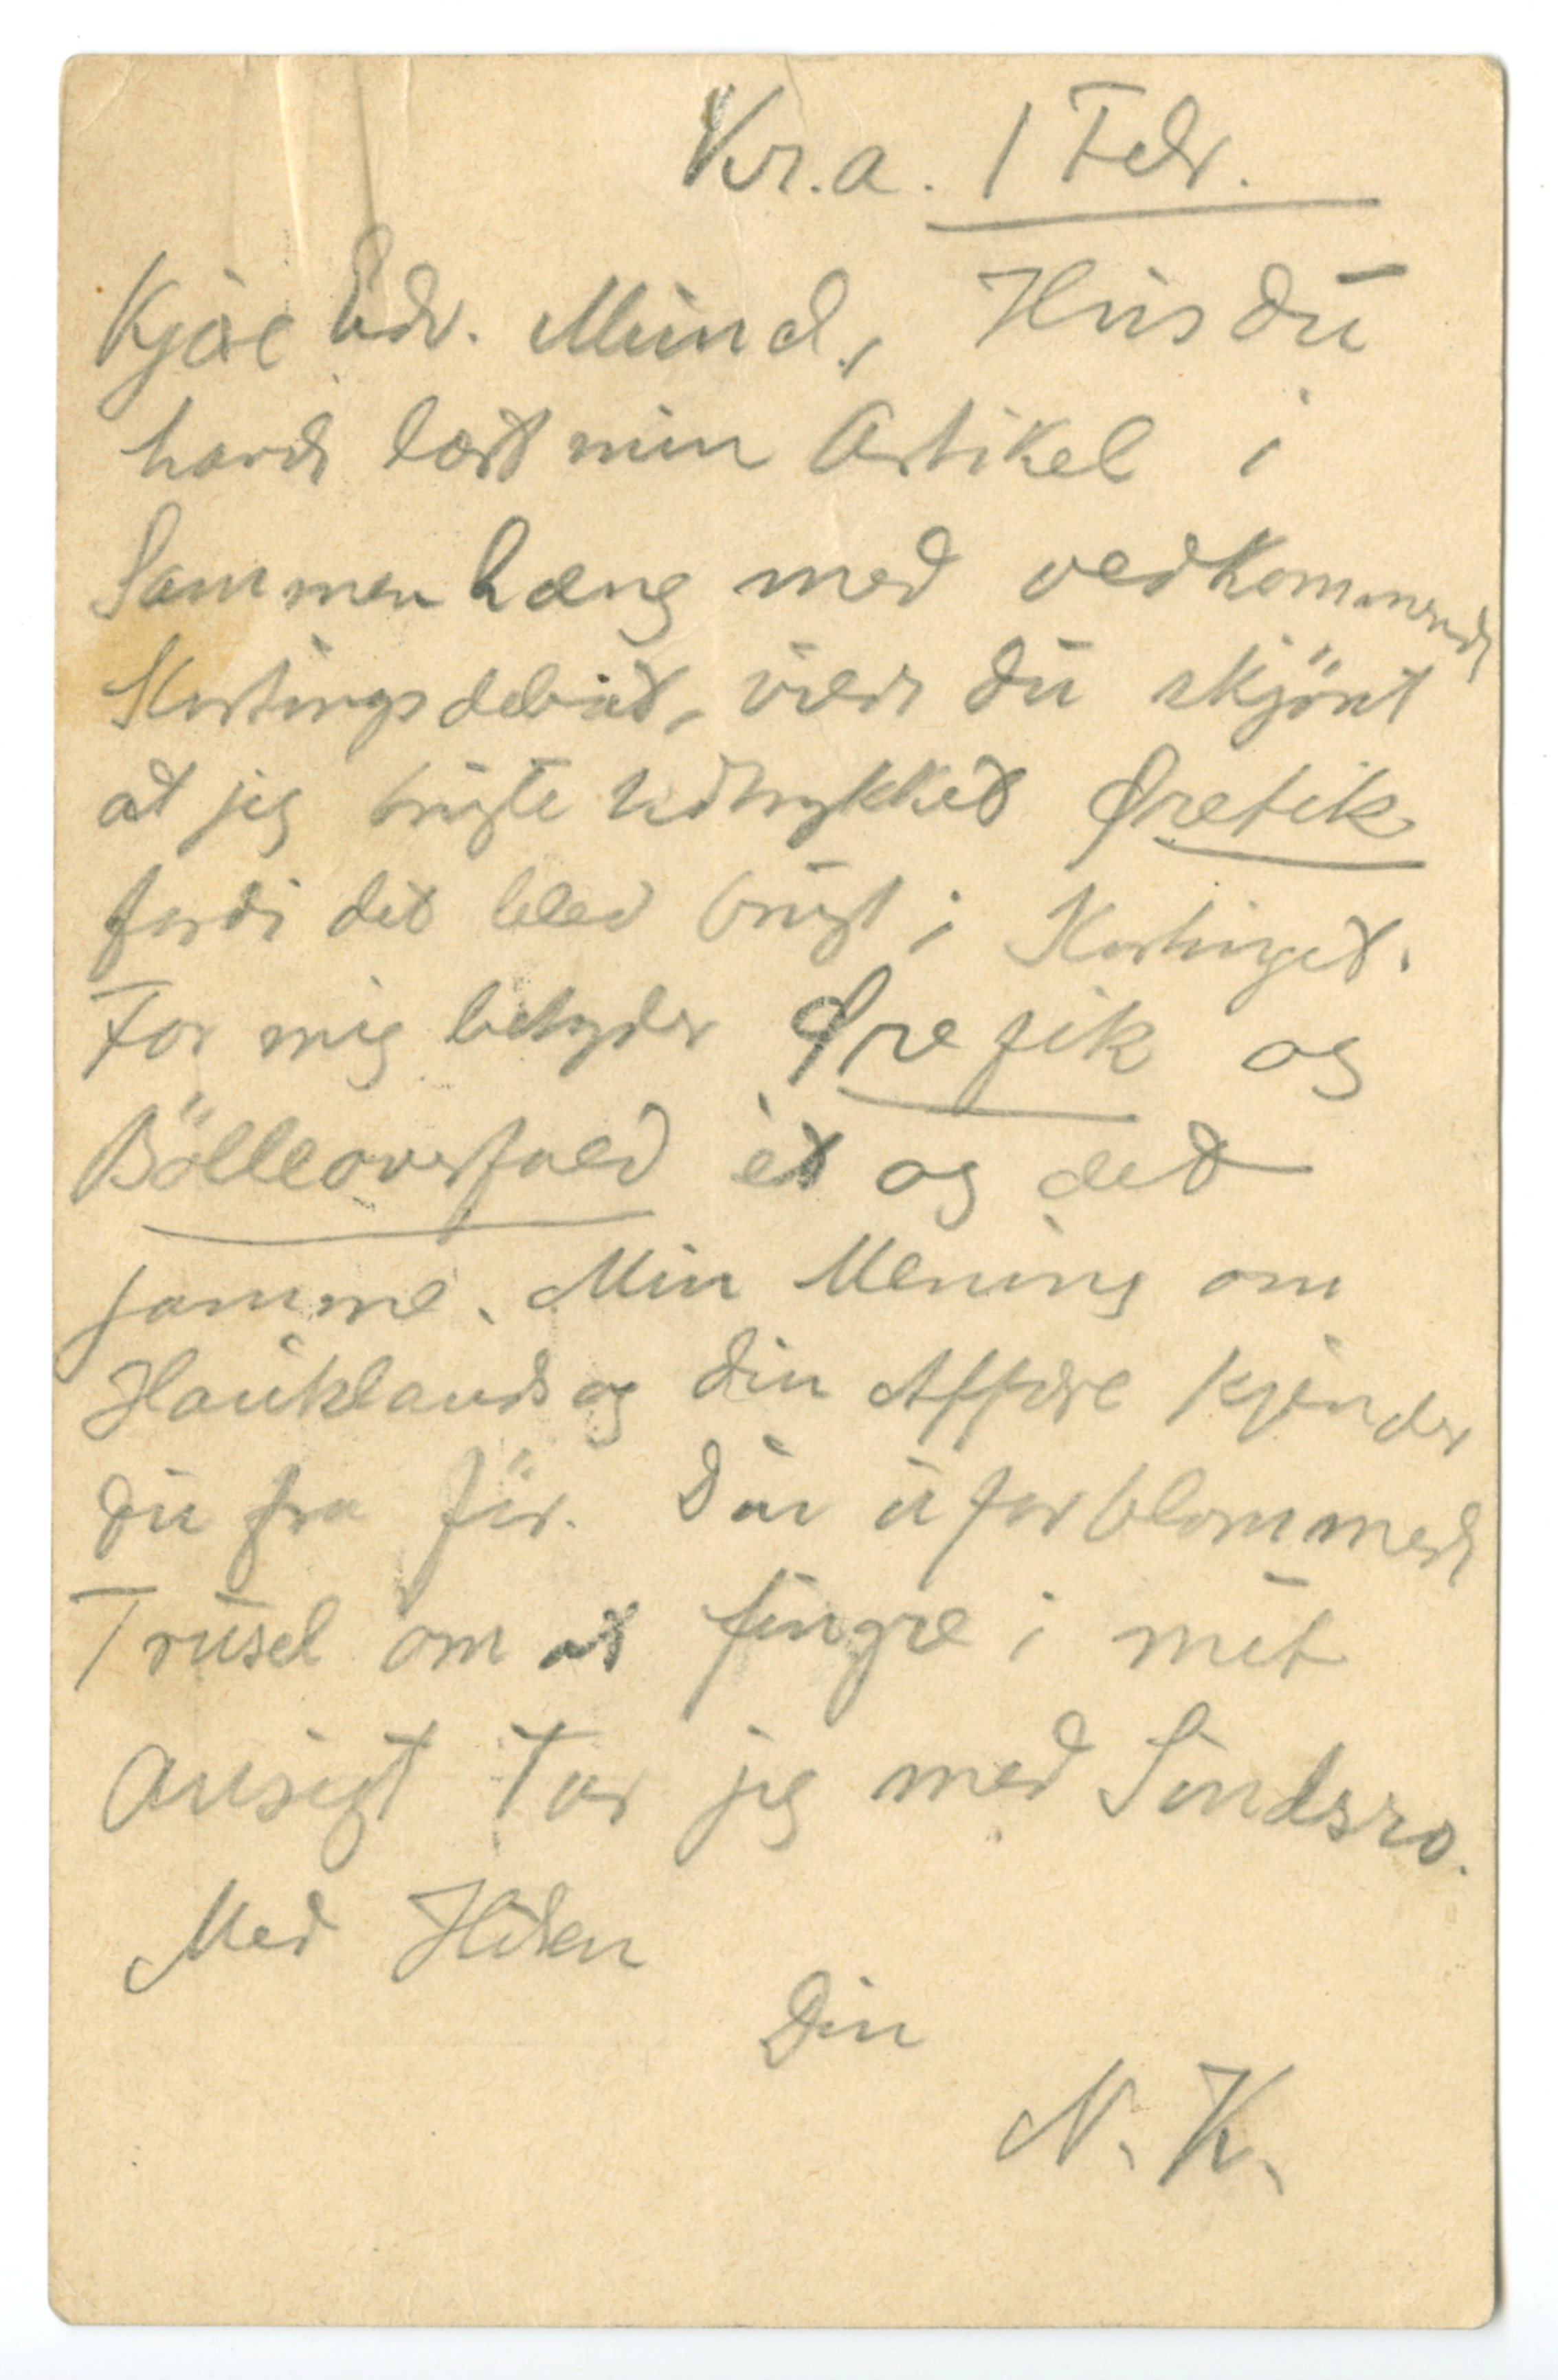 Kr.a. 1 Febr.
Kjære Edv. Munch, Hvis du
havde læst min Artikel i
Sammenhæng med vedkommende
Stortingsdebat, vilde du skjönt
at jeg brugte Udtrykket Ørefik
fordi det blev brugt i Stortinget.
For mig betyder Ørefik og
Bölleoverfald èt og det
samme. Min Mening om
Hauklands og din Affære kjender
du fra för. Din uforblommede
Trusel om at fingre i mit
Ansigt tar jeg med Sindsro.
Med Hilsen
Din
N. K.